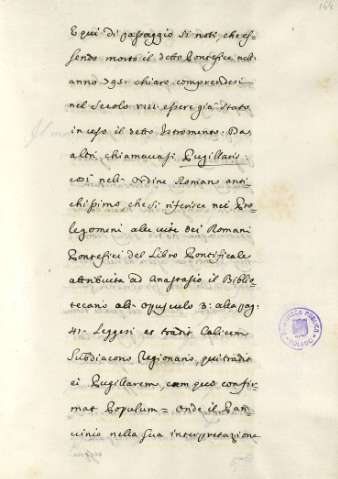 164
E qui di passaggio si noti, che es=
sendo morto il detto Pontefice nell'
anno 795: chiaro comprendesi
nel Secolo VIII essere già stato
in uso il detto Istromento. Da
altri chiamavasi Pugillaris
così nell' Ordine Romano anti=
chissimo che si riferisce nei Pro=
legomeni alle vite dei Romani
Pontefici del Libro Pontificale
attribuita ad Anastasio il Biblio=
tecario all' Opuscolo 3: alla pag:
41. Leggesi et tradit Calicem
Subdiacono Regionario, qui tradit
ei Pugillarem, cum quo confir=
mat Populum = Onde il Pan=
vinio nella sua interpretazione